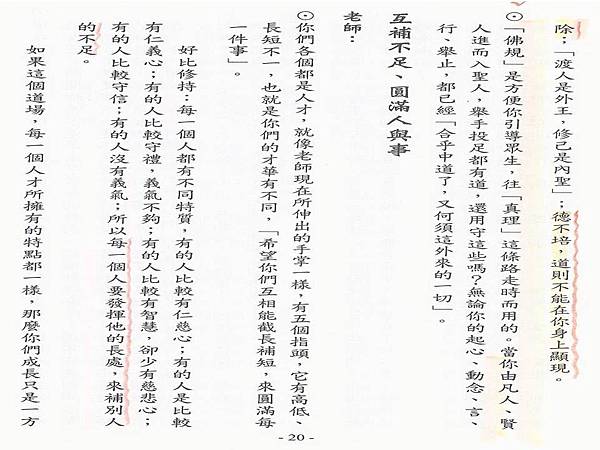 除；「渡人是外王，修己是內聖」；德不培，道則不能在你身上顯現。
⊙「佛規」是方便你引導眾生，往「真理」這條路走時而用的。當你由凡人、賢
人進而入聖人，舉手投足都有道，還用守這些嗎？無論你的起心、動念、言、
行、舉止，都已經「合乎中道了，又何須這外來的一切」。
互補不足、圓滿人與事
老師：
⊙你們各個都是人才，就像老師現在所伸出的手掌一樣，有五個指頭，它有高低、
長短不一，也就是你們的才華有不同，「希望你們互相能截長補短，來圓滿每
一件事」。
好比修持：每一個人都有不同特質，有的人比較有仁慈心；有的人是比較
有仁義心；有的人比較守禮，義氣不夠；有的人比較有智慧，卻少有慈悲心；
有的人比較守信；有的人沒有義氣；所以每一個人要發揮他的長處，來補別人
的不足。
如果這個道場，每一個人才所擁有的特點都一樣，那麼你們成長只是一方
- 20 -